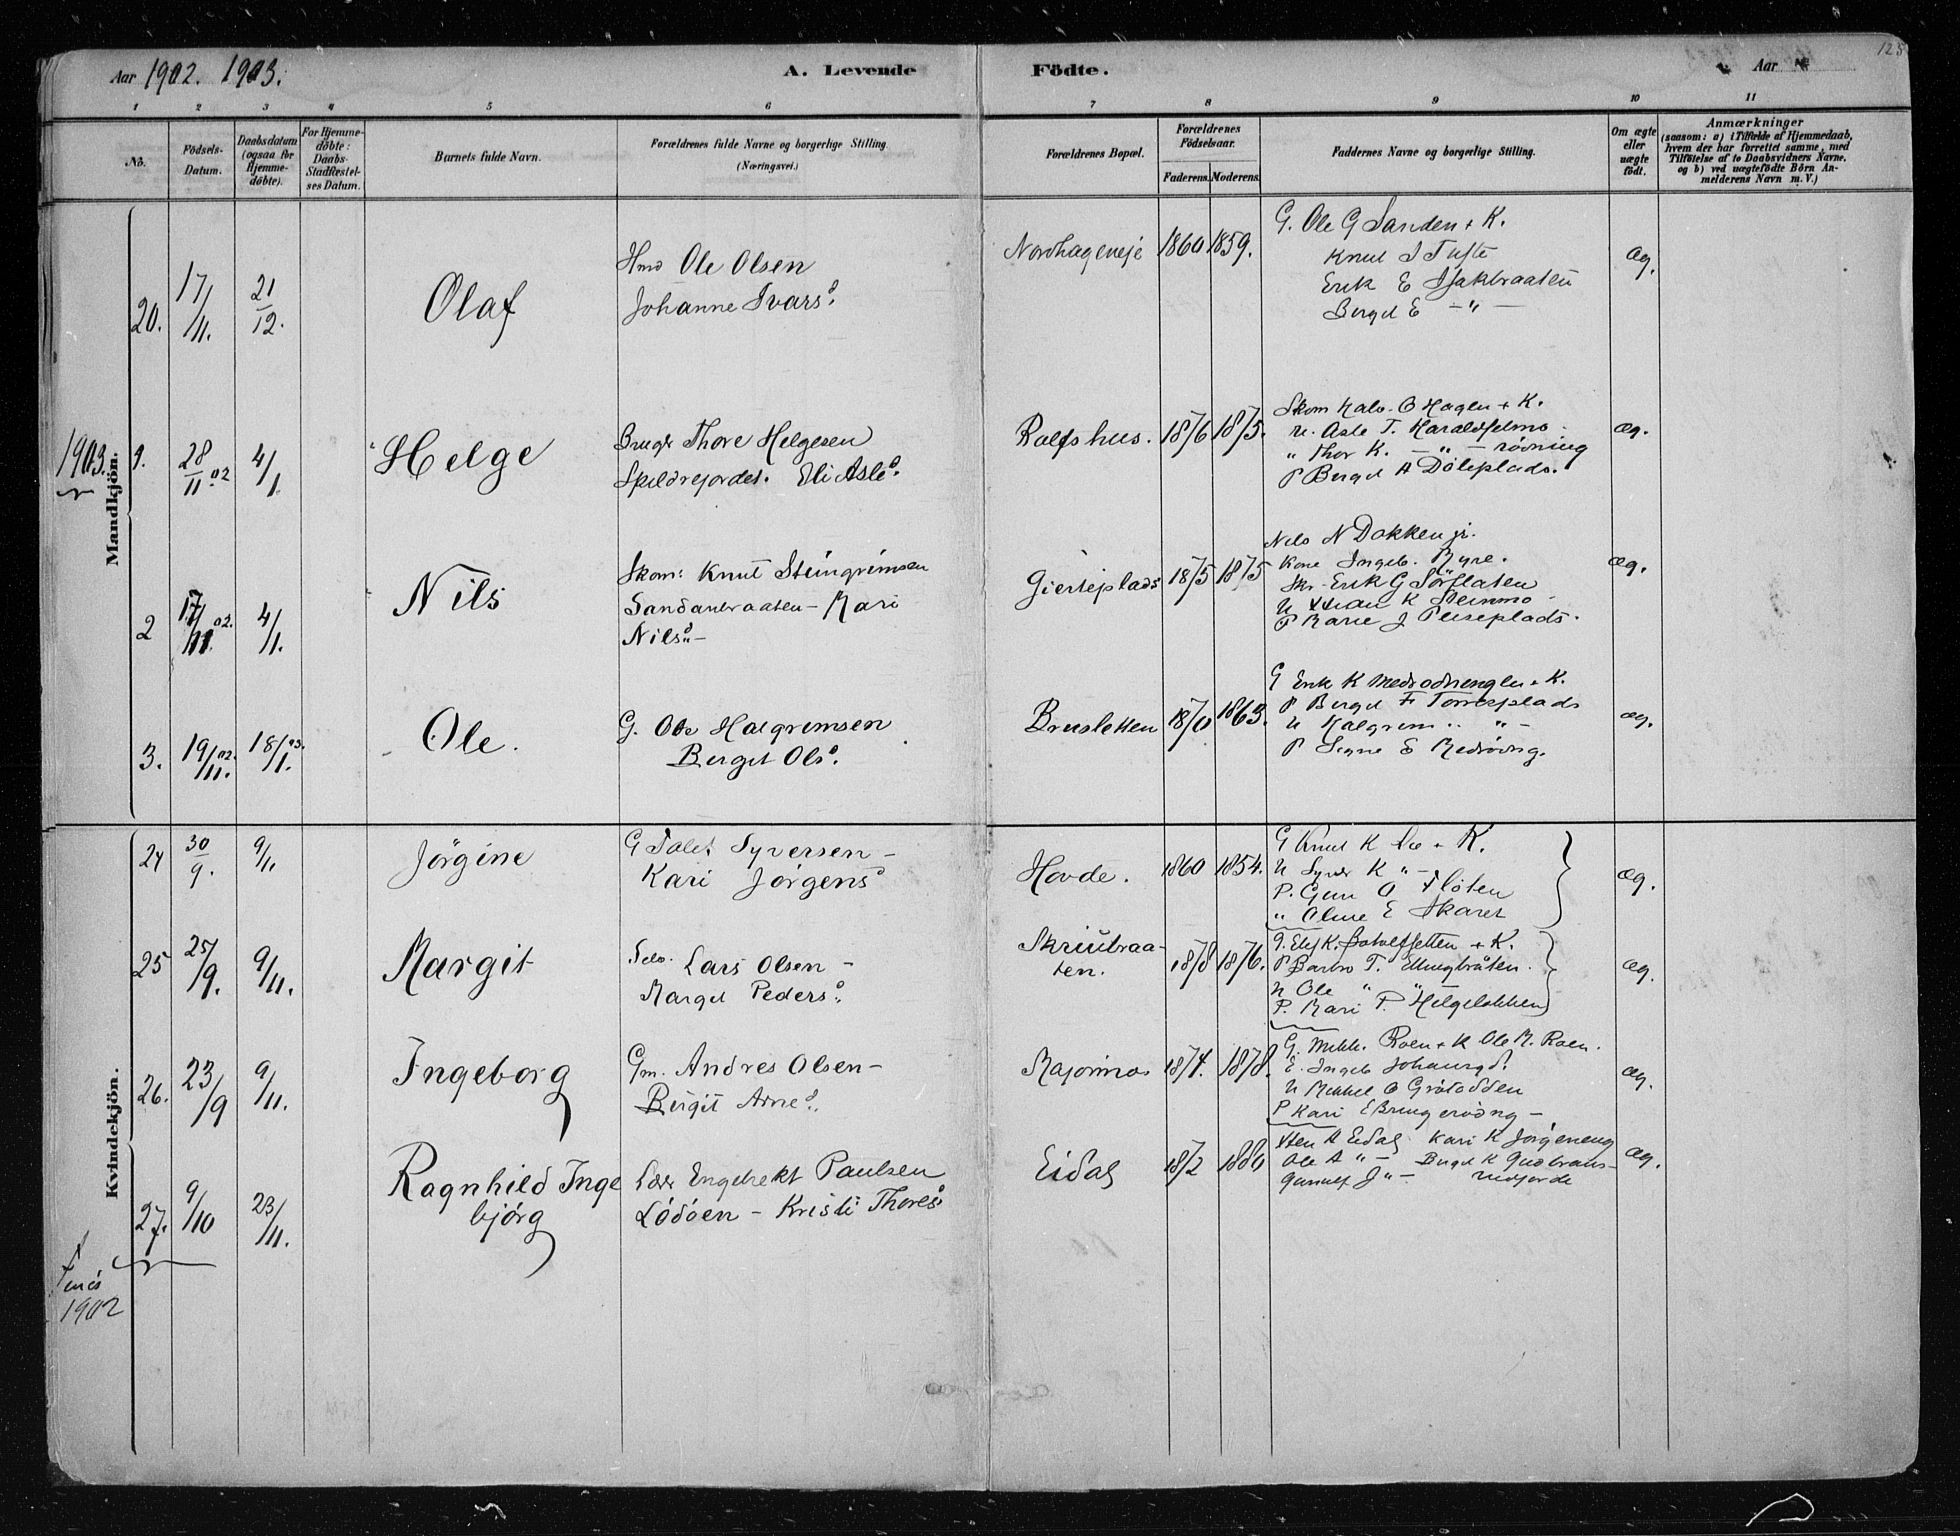 125
Aar 1902. 1903.
A. Levende Födte.
Aar
1 2 3 4 5 6 7 8 9 10 11
No.
Födsels-Datum.
Daabsdatum (ogsaa for Hjemme-döbte).
For Hjemme-döbte: Daabs-Stadfæstel-ses Datum.
Barnets fulde Navn.
Forældrenes fulde Navne og borgerlige Stilling. (Næringsvei.)
Forældrenes Bopæl.
Forældrenes Födselsaar.
Faderens. Moderens.
Faddernes Navne og borgerlige Stilling.
Om ægte eller uægte födt.
Anmærkninger
(saasom: a) i Tilfælde af Hjemmedaab, hvem der har forrettet samme, med Tilföielse af to Daabsvidners Navne, og b) ved uægtefödte Börn An-melderens Navn m. V.)
Mandkjön.
20. 17/11. 21/12. Olaf
Hmd Ole Olsen
Johanne Ivarsd.
Nordhageneje 1860 1859.
G. Ole G Sanden + K.
Knut S Tufte
Erik E
Bergit E — " —
æg.
1903.
1. 28/11 02 4/1. Helge
Bruger Thore Helgesen
Skildrejordet. Eli Aslesd.
Rolfshus. 1876 1875.
Skom Halv. O Hagen + K.
U. Asle T. Haraldselmo
" Thor K. — " — rödning
P Bergit A Döleplads.
æg.
2 17/11 02. 4/1. Nils
Skom: Knut Steingrimsen
Sandanbraaten — Kari
Nilsd. —
Gierteplads 1875 1875
Nils N Dokken jr.
Kone Ingeb. Ryne.
Erik G Sörflaten
K Steinmo
P Kari J Peiseplads.
æg.
3. 19/11 02. 18/1 03. Ole.
G. Ole Halgrimsen
Bergit Olsd.
Brusletten 1870 1863.
G Erik K Medrodrengen + K.
P Bergit F Torresplads
U Halgrim " " —
P Signe E Medröing.
æg.
Kvindekjön.
24 30/9. 9/11. Jörgine
G Tolef Syversen —
Kari Jörgensd
Hovde. 1860 1854.
G Knut K + K.
U Syver K " —
P. Guri O Flöten
" Oline E Skaret
æg.
25 25/9. 9/11. Margit
Selv. Lars Olsen —
Margit Pedersd.
Skriubraa-
ten. 1878 1876.
G. Elef K. Botolfsetten + K.
P Barbro T. Ellingbråten.
U Ole " "
P. Kari P Helgeløkken
æg.
26. 23/9 9/11. Ingeborg
Gm. Andres Olsen —
Bergit Arned.
Majormos 1874. 1878.
G. Mikk. Roen + K Ole M. Roen.
E. Ingeb Johannesd.
U Mikkel O Grötodden
P Kari E Bringeröng —
æg.
27. 9/10 23/11. Ragnhild Inge
björg
Lær Engebrekt Paulsen
Lödöen — Kristi Thoresd
Eidal 1872 1880
Sten A Eidal Kari K Jörgeneng
Ole A " — Bergit K Gudbrans-
Gunulf J " —
æg.
Finis
1902